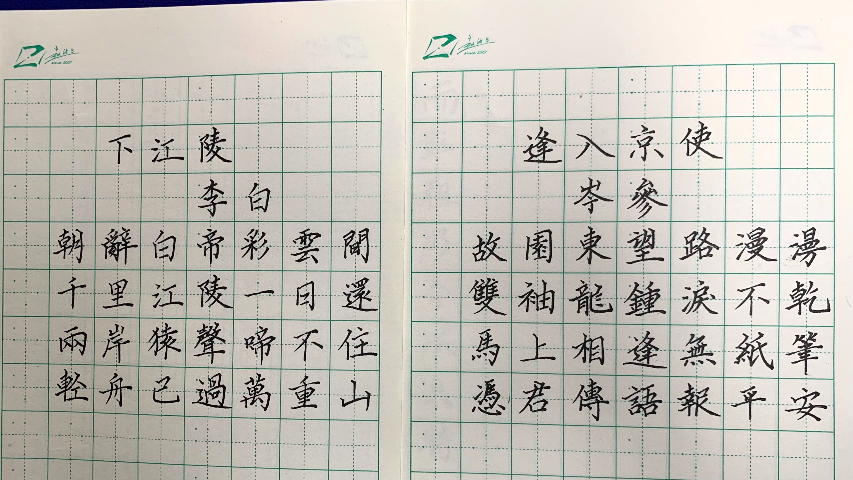 下江陵
李白
朝辭白帝彩雲間
千里江陵一日還
兩岸猿聲啼不住
輕舟已過萬重山
逢入京使
岑參
故園東望路漫漫
雙袖龍鍾淚不乾
馬上相逢無紙筆
憑君傳語報平安